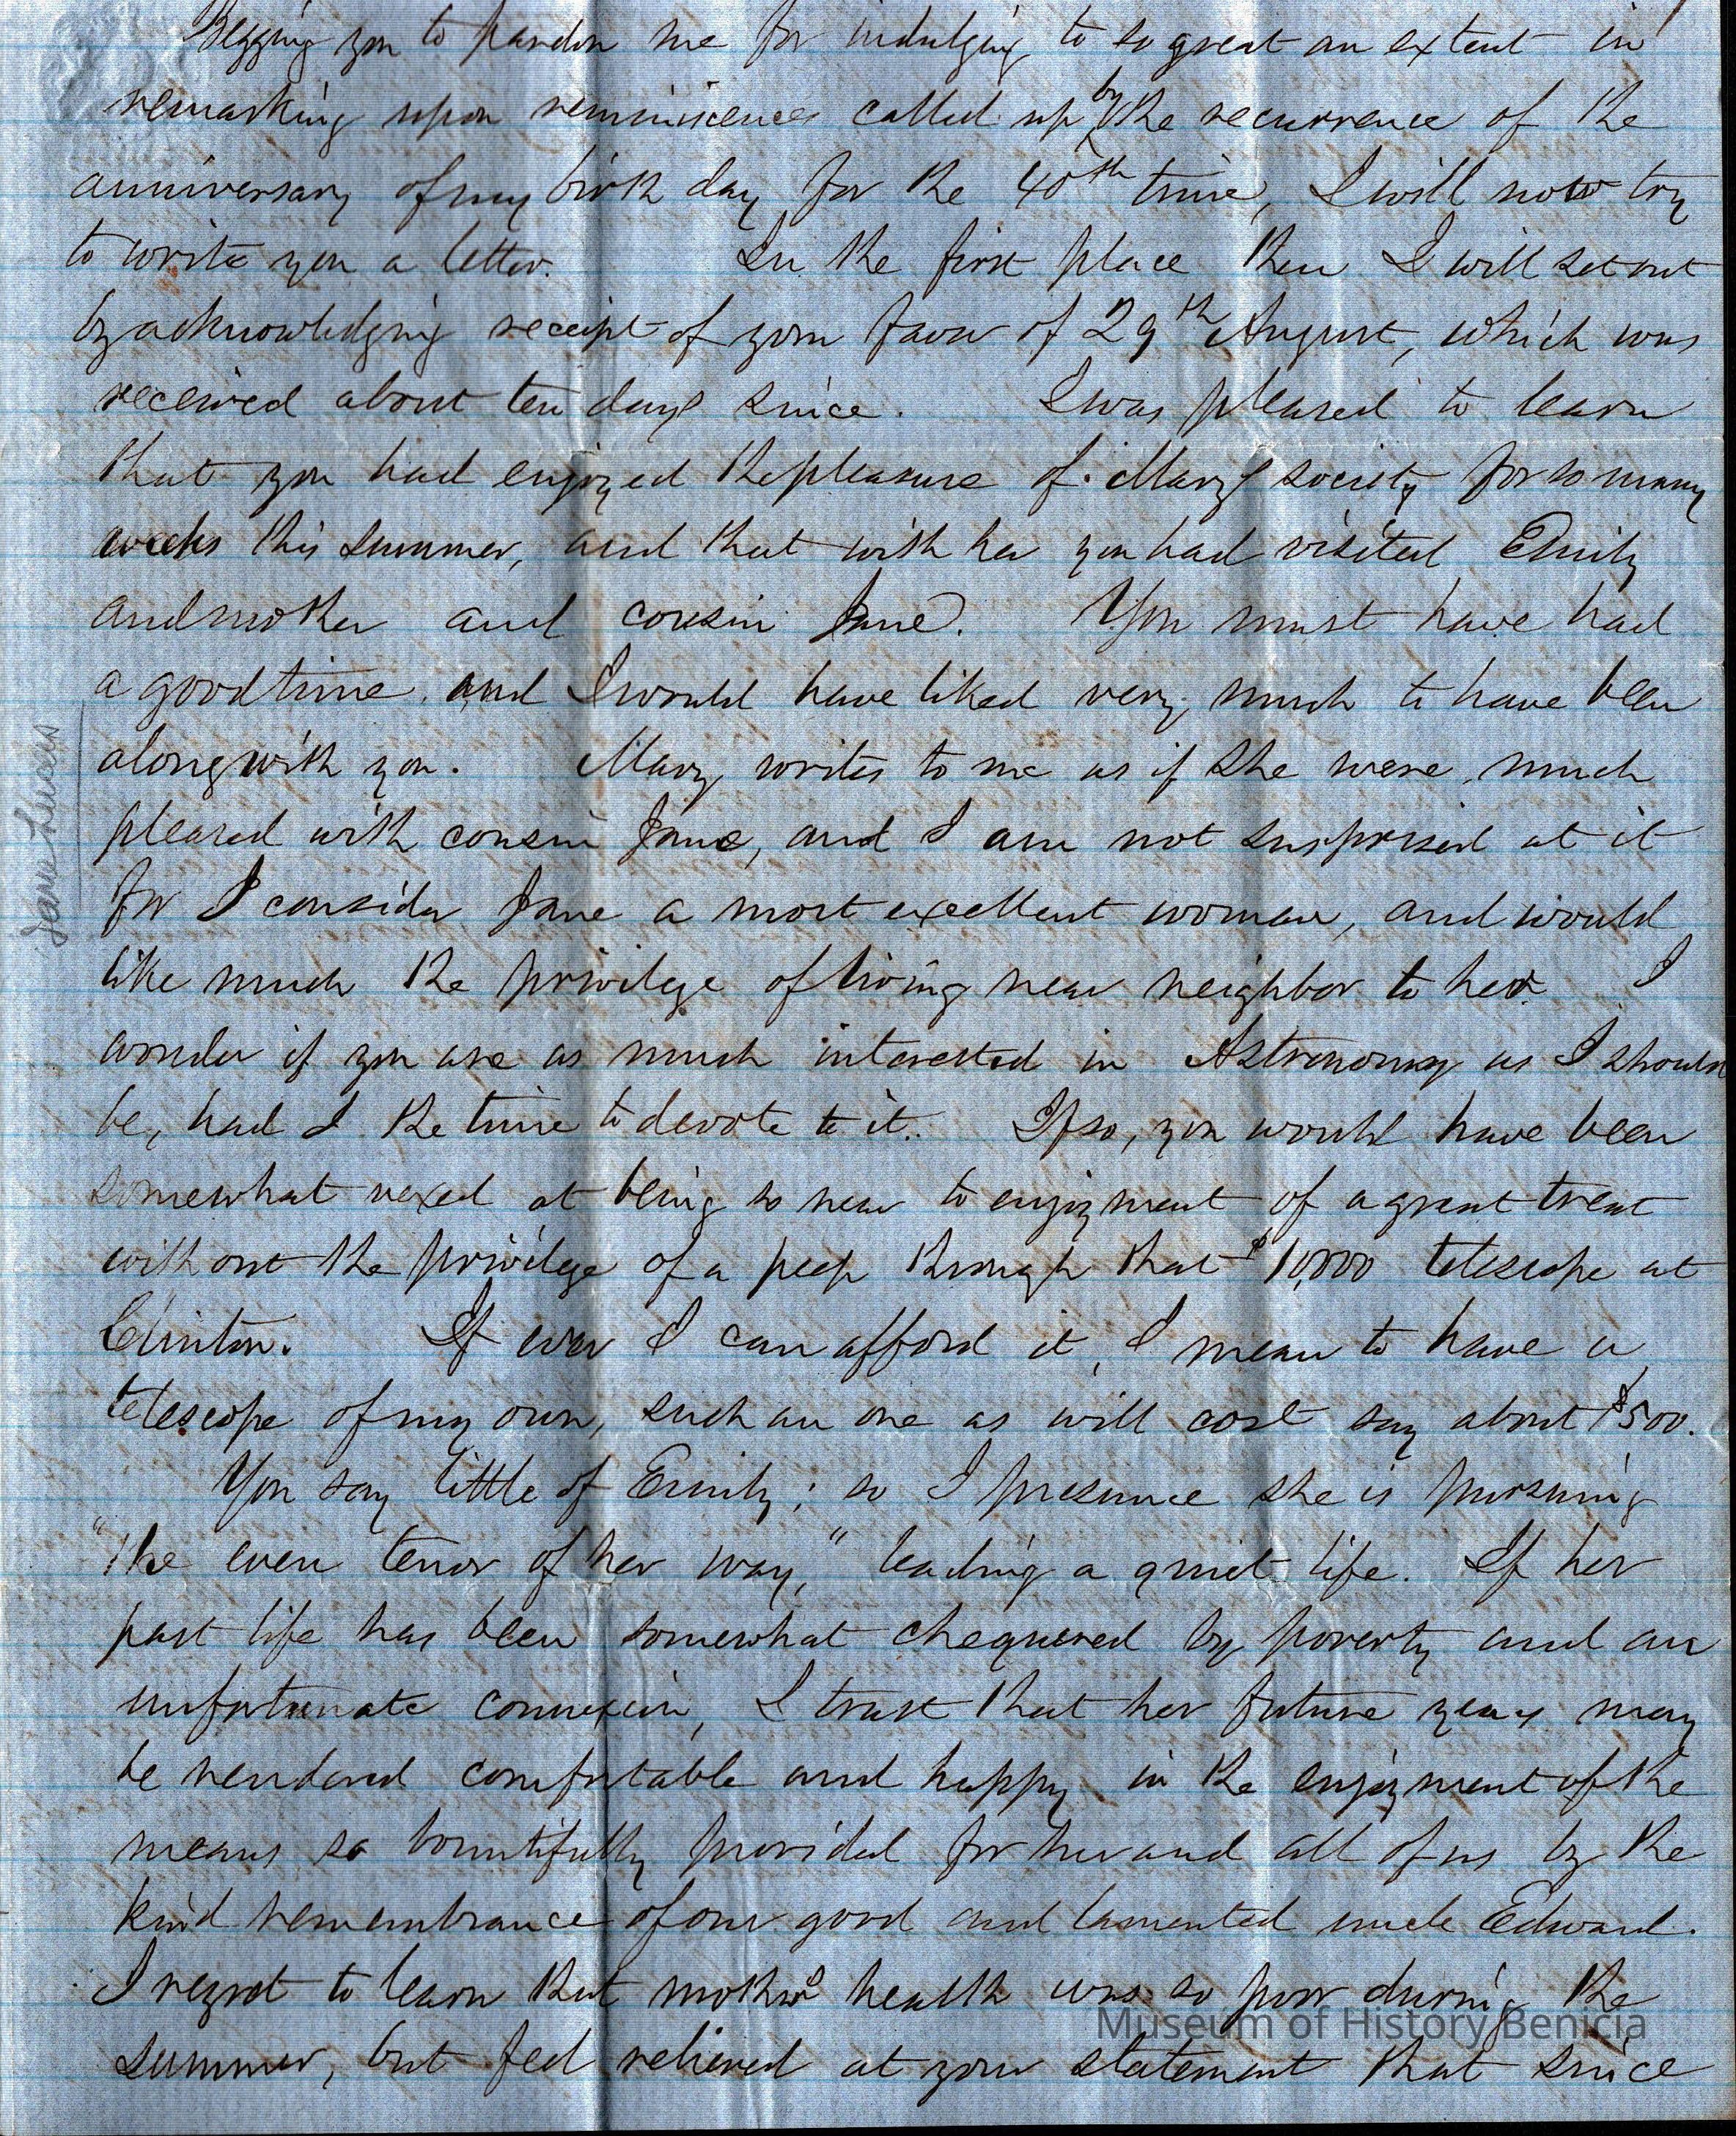 Begging you to pardon me for indulging to so great an extent in
remarking upon reminiscences called up by the recurrence of the
anniversary of my birth day for the 40th time, I will now try
to write you a letter. In the first place then I will set out
by acknowledging receipt of your favor of 29th August, which was
received about ten days since. I was pleased to learn
that you had enjoyed the pleasure of Marys society for so many
weeks this summer, and that with her you had visited Emily
and mother and cousin Jane. You must have had
a good time, and I would have liked very much to have been
along with you. Mary writes to me as if she were much
pleased with cousin Jane, and I am not surprised at it
for I consider Jane a most excellent woman, and would
like much the privilege of living near neighbor to her. I
wonder if you are as much interested in Astronomy as I should
be, had I the time to devote to it. If so, you would have been
somewhat vexed at being so near to enjoyment of a great treat
without the privilege of a peep through that $10,000 telescope at
Clinton. If ever I can afford it, I mean to have a
telescope of my own, such an one as will cost say about $500.
You say little of Emily; so I presume she is pursuing
"the even tenor of her way," leading a quiet life. If her
past life has been somewhat chequered by poverty and an
unfortunate connexion, I trust that her future years may
be rendered comfortable and happy in the enjoyment of the
means so bountifully provided for her and all of us by the
kind remembrance of our good and lamented uncle Edward.
I regret to learn that mothers health was so poor during the
summer, but feel relieved at your statement that since
Jane
Museum of History Benicia